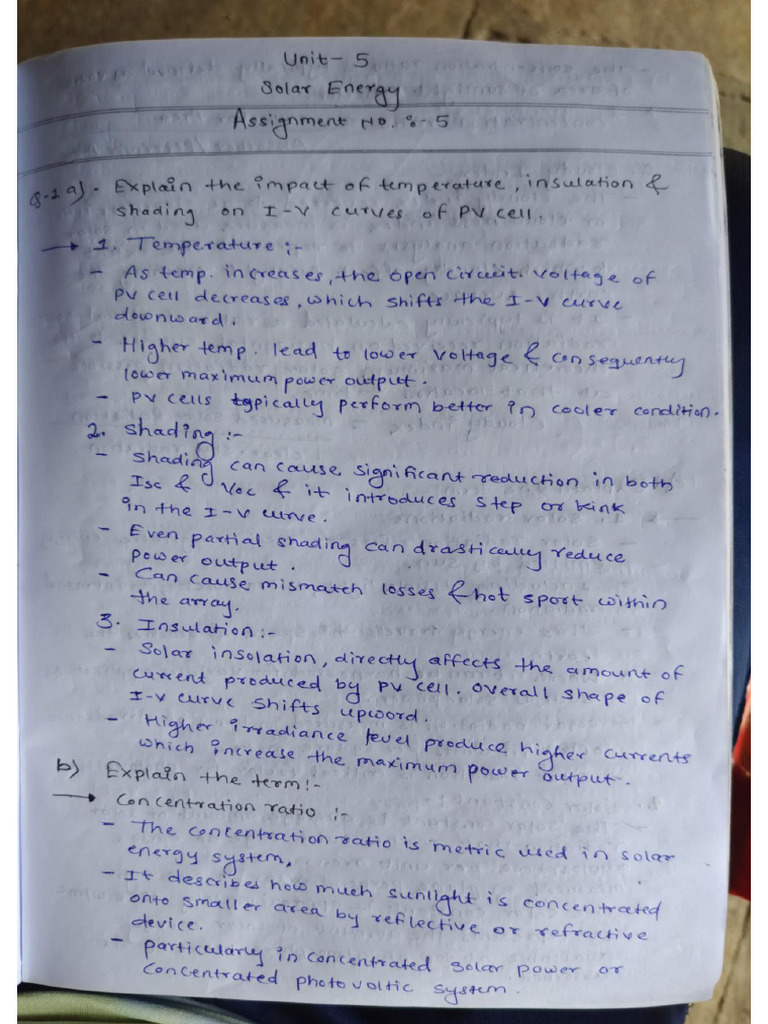 Unit- 5
Solar Energy
Assignment No. :- 5
Q-1 a). Explain the impact of temperature, insulation &
shading on I-V curves of PV cell.
→ 1. Temperature :-
- As temp. increases, the open circuit voltage of
PV cell decreases, which shifts the I-V curve
downward.
- Higher temp. lead to lower voltage & consequently
lower maximum power output.
- PV cells typically perform better in cooler condition.
2. Shading :-
- Shading can cause significant reduction in both
Isc & Voc & it introduces step or kink
in the I-V curve.
- Even partial shading can drastically reduce
power output.
- Can cause mismatch losses & hot sport within
the array.
3. Insulation :-
- Solar insolation, directly affects the amount of
current produced by PV cell. overall shape of
I-V curve shifts upword.
- Higher irradiance level produce higher currents
which increase the maximum power output.
b) Explain the term :-
→ Concentration ratio :-
- The concentration ratio is metric used in solar
energy system,
- It describes how much sunlight is concentrated
onto smaller area by reflective or refractive
device.
- particularly in concentrated solar power or
concentrated photovoltic system.